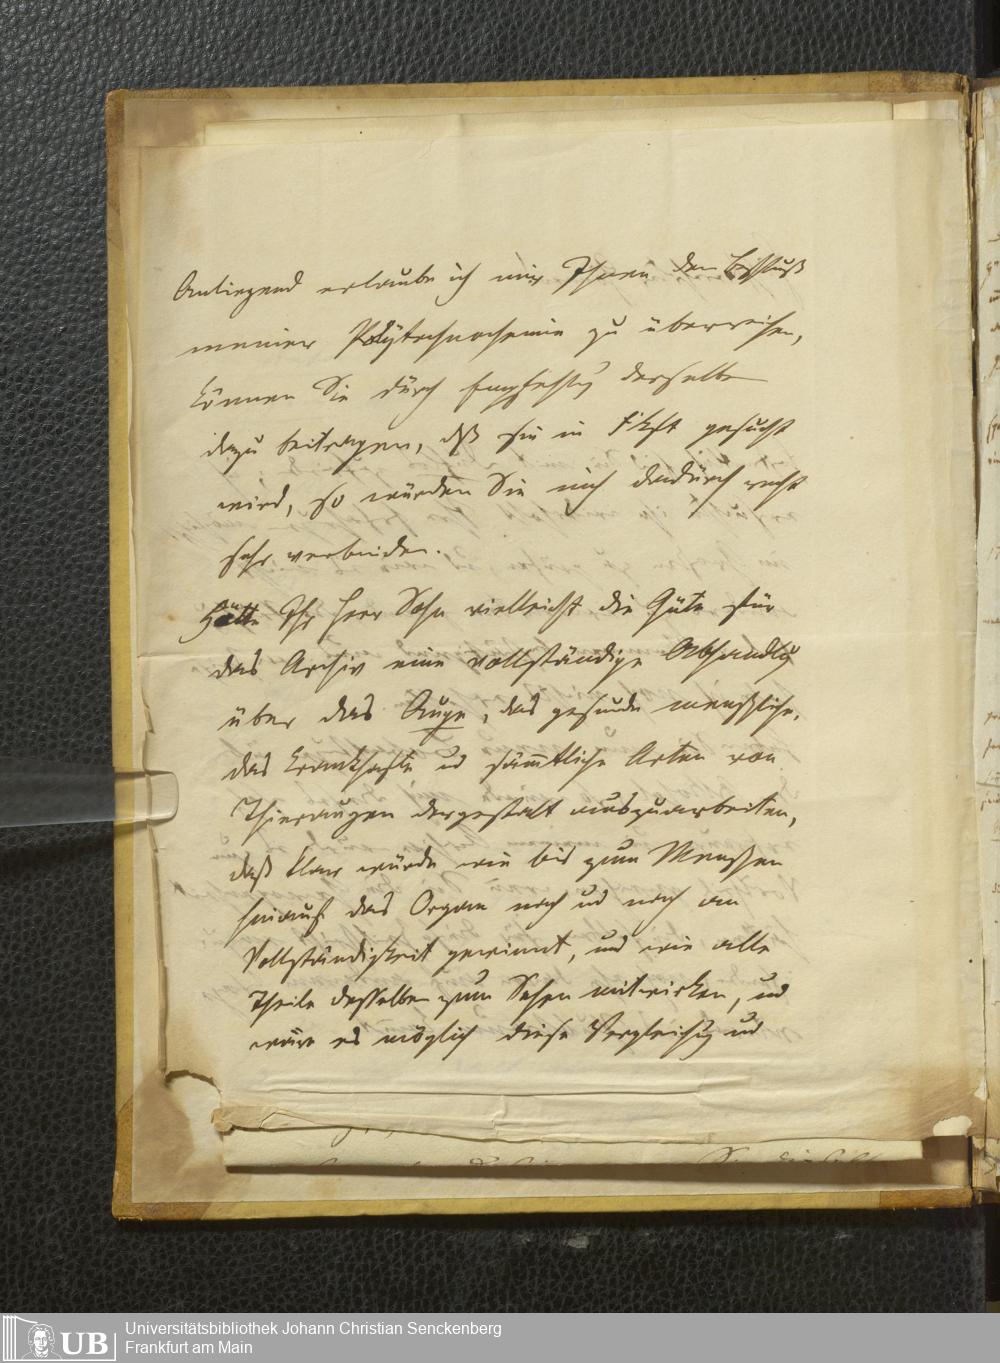 Anliegend erlaube ich mir Ihnen den Beschluß
meiner Polytechnochemie zu überreichen,
können Sie durch Empfehlg derselben
dazu beitragen, dß sie in Fkft gesucht
wird, so würden Sie mich dadurch recht
sehr verbinden.
Hätte Ihr Herr Sohn vielleicht die Güte für
das Archiv eine vollständige Abhandlg
über das Auge, das gesunde menschliche,
das krankhafte ud sämtliche Arten von
Thieraugen dergestalt auszuarbeiten,
daß klar würde wie bis zum Menschen
hinauf das Organ nach ud nach an
Vollständigkeit gewinnt, und wie alle
Theile desselben zum Sehen mitwirken, ud
wäre es möglich diese Vergleichg ud
UB
Universitätsbibliothek Johann Christian Senckenberg
Frankfurt am Main